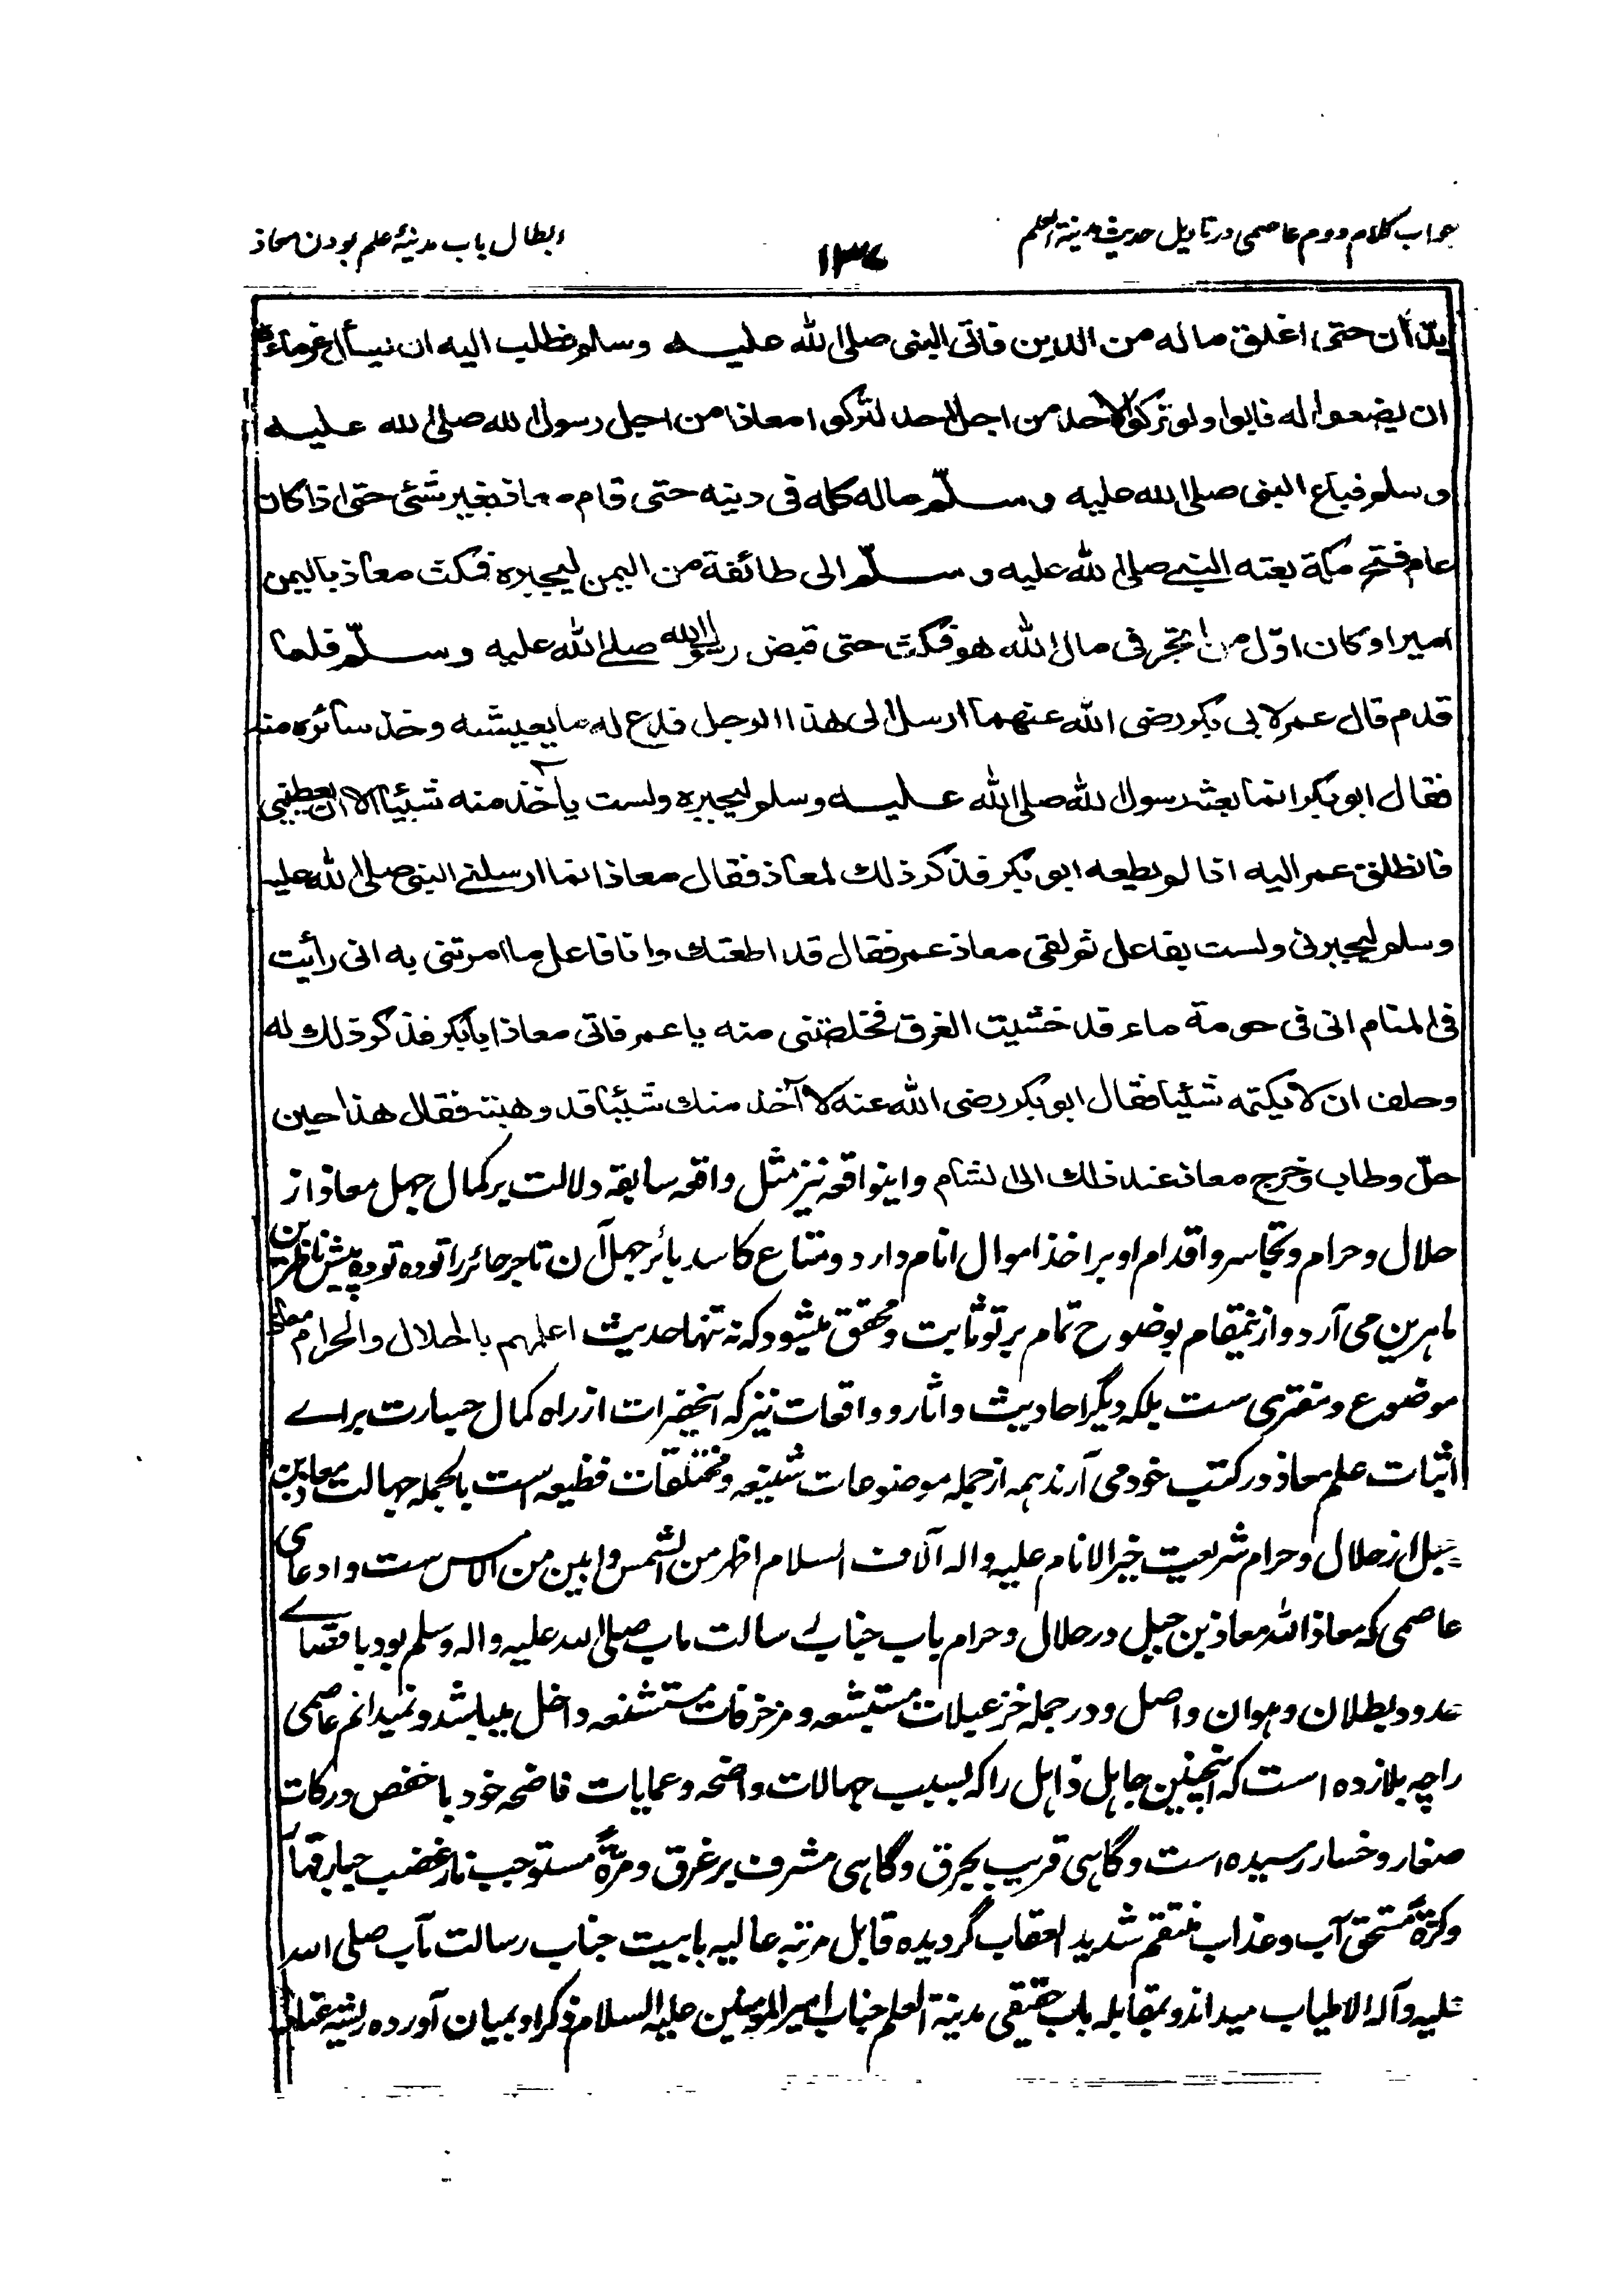 جواب کلام دوم عاصمی در تاویل حدیث مدینة العلم
۱۳۷
ابطال باب مدینهٔ علم بودن معاذ
یدّان حتی اغلق ماله من الدین فاتی النبی صلی الله علیه وسلم فطلب الیه ان یسأل غرماءه
ان یضعوا له فابوا ولو ترکوا لاحد من اجل احد لترکوا معاذا من اجل رسول الله صلی الله علیه
وسلم فباع النبی صلی الله علیه وسلّم ماله کله فی دینه حتی قام معاذ بغیر شئی حتی اذا کان
عام فتح مکة بعثه النبی صلی الله علیه وسلّم الی طائفة من الیمن لیجبره فمکث معاذ بالیمن
امیرا و کان اوّل من اتجر فی مال الله هو فمکث حتی قبض رسول الله صلی الله علیه وسلّم فلما
قدم قال عمر لابی بکر رضی الله عنهما ارسل الی هذا الرجل فدع له ما یعیشه وخذ سائره منه
فقال ابو بکر انما بعثه رسول الله صلی الله علیه وسلم لیجبره ولست بآخذ منه شیئا الا ان یعطینی
فانطلق عمر الیه اذا لم یطعه ابو بکر فذکر ذلك لمعاذ فقال معاذ انما ارسلنی النبی صلی الله علیه
وسلم لیجبرنی ولست بفاعل ثم لقی معاذ عمر فقال قد اطعتك وانا فاعل ما امرتنی به انی رأیت
فی المنام انی فی حومة ماء قد خشیت الغرق فخلصتنی منه یا عمر فاتی معاذ ابا بکر فذکر ذلك له
وحلف ان لا یکتمه شیئا فقال ابو بکر رضی الله عنه لا آخذ منك شیئا قد وهبته فقال هذا حین
حلّ وطاب وخرج معاذ عند ذلك الی الشام و اینواقعه نیز مثل واقعه سابقه دلالت بر کمال جهل معاذ از
حلال و حرام و تجاسر و اقدام او بر اخذ اموال انام دارد و متاع کاسد بائر جهل آن تاجر حائر را توده توده پیش ناظرین
ماهرین می آرد و ازینمقام بوضوح تمام بر تو ثابت و محقق میشود که نه تنها حدیث اعلمهم بالحلال والحرام معاذ
موضوع و مفتری ست بلکه دیگر احادیث و اثار و واقعات نیز که آنحضرات از راه کمال جسارت برای
اثبات علم معاذ در کتب خود می آرند همه از جمله موضوعات شنیعه و مختلقات فظیعه است بالجمله جهالت معاذ بن
جبل از حلال و حرام شریعت خیر الانام علیه و اله آلاف السلام اظهر من الشمس و ابین من الامس ست و ادعای
عاصمی که معاذ الله معاذ بن جبل در حلال و حرام باب جناب رسالت ماب صلی الله علیه و اله و سلم بود باقصای
حدود بطلان و هوان واصل و در جمله خزعبیلات مستبشعه و مزخرفات مستشنعه داخل میباشد و نمیدانم عاصمی
را چه بلا زده است که اینچنین جاهل ذاهل را که بسبب جهالات واضحه و عمایات فاضحه خود باخفض درکات
صغار و خسار رسیده است و گاهی قریب بحرق و گاهی مشرف بر غرق و مرّةً مستوجب نار غضب جبار قهار
و کرّةً مستحق آب و عذاب منتقم شدید العقاب گردیده قابل مرتبه عالیه بابیت جناب رسالت مآب صلی الله
علیه و آله الاطیاب میداند و بمقابله باب حقیقی مدینة العلم جناب امیر المومنین علیه السلام ذکر او بمیان آورده